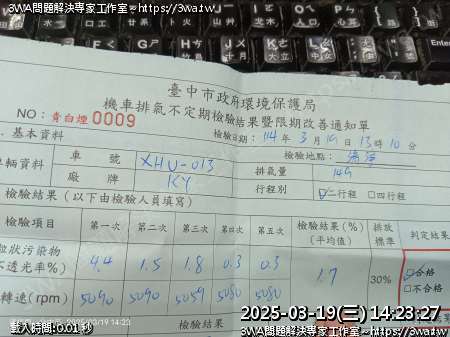 3WA問題解決專家工作室 - https://3wa.tw
臺中市政府環境保護局
機車排氣不定期檢驗結果暨限期改善通知單
NO：青白煙0009
檢驗日期：114年3月19日13時10分
基本資料
檢驗地點：
車輛資料
車號 XHU-013
排氣量 149
廠牌 KY
行程別 ☑二行程 □四行程
檢驗結果（以下由檢驗人員填寫）
檢驗項目 第一次 第二次 第三次 第四次 第五次 檢驗結果(%)(平均值) 排放標準 判定結果
粒狀污染物
不透光率%) 4.4 1.5 1.8 0.3 0.3 1.7 30% ☑合格
□不合格
轉速(rpm) 5090 5090 5059 5080 5080
檢驗結果
2025/03/19 14:23
2025-03-19(三) 14:23:27
載入時間: 0.01 秒
3WA問題解決專家工作室 - https://3wa.tw